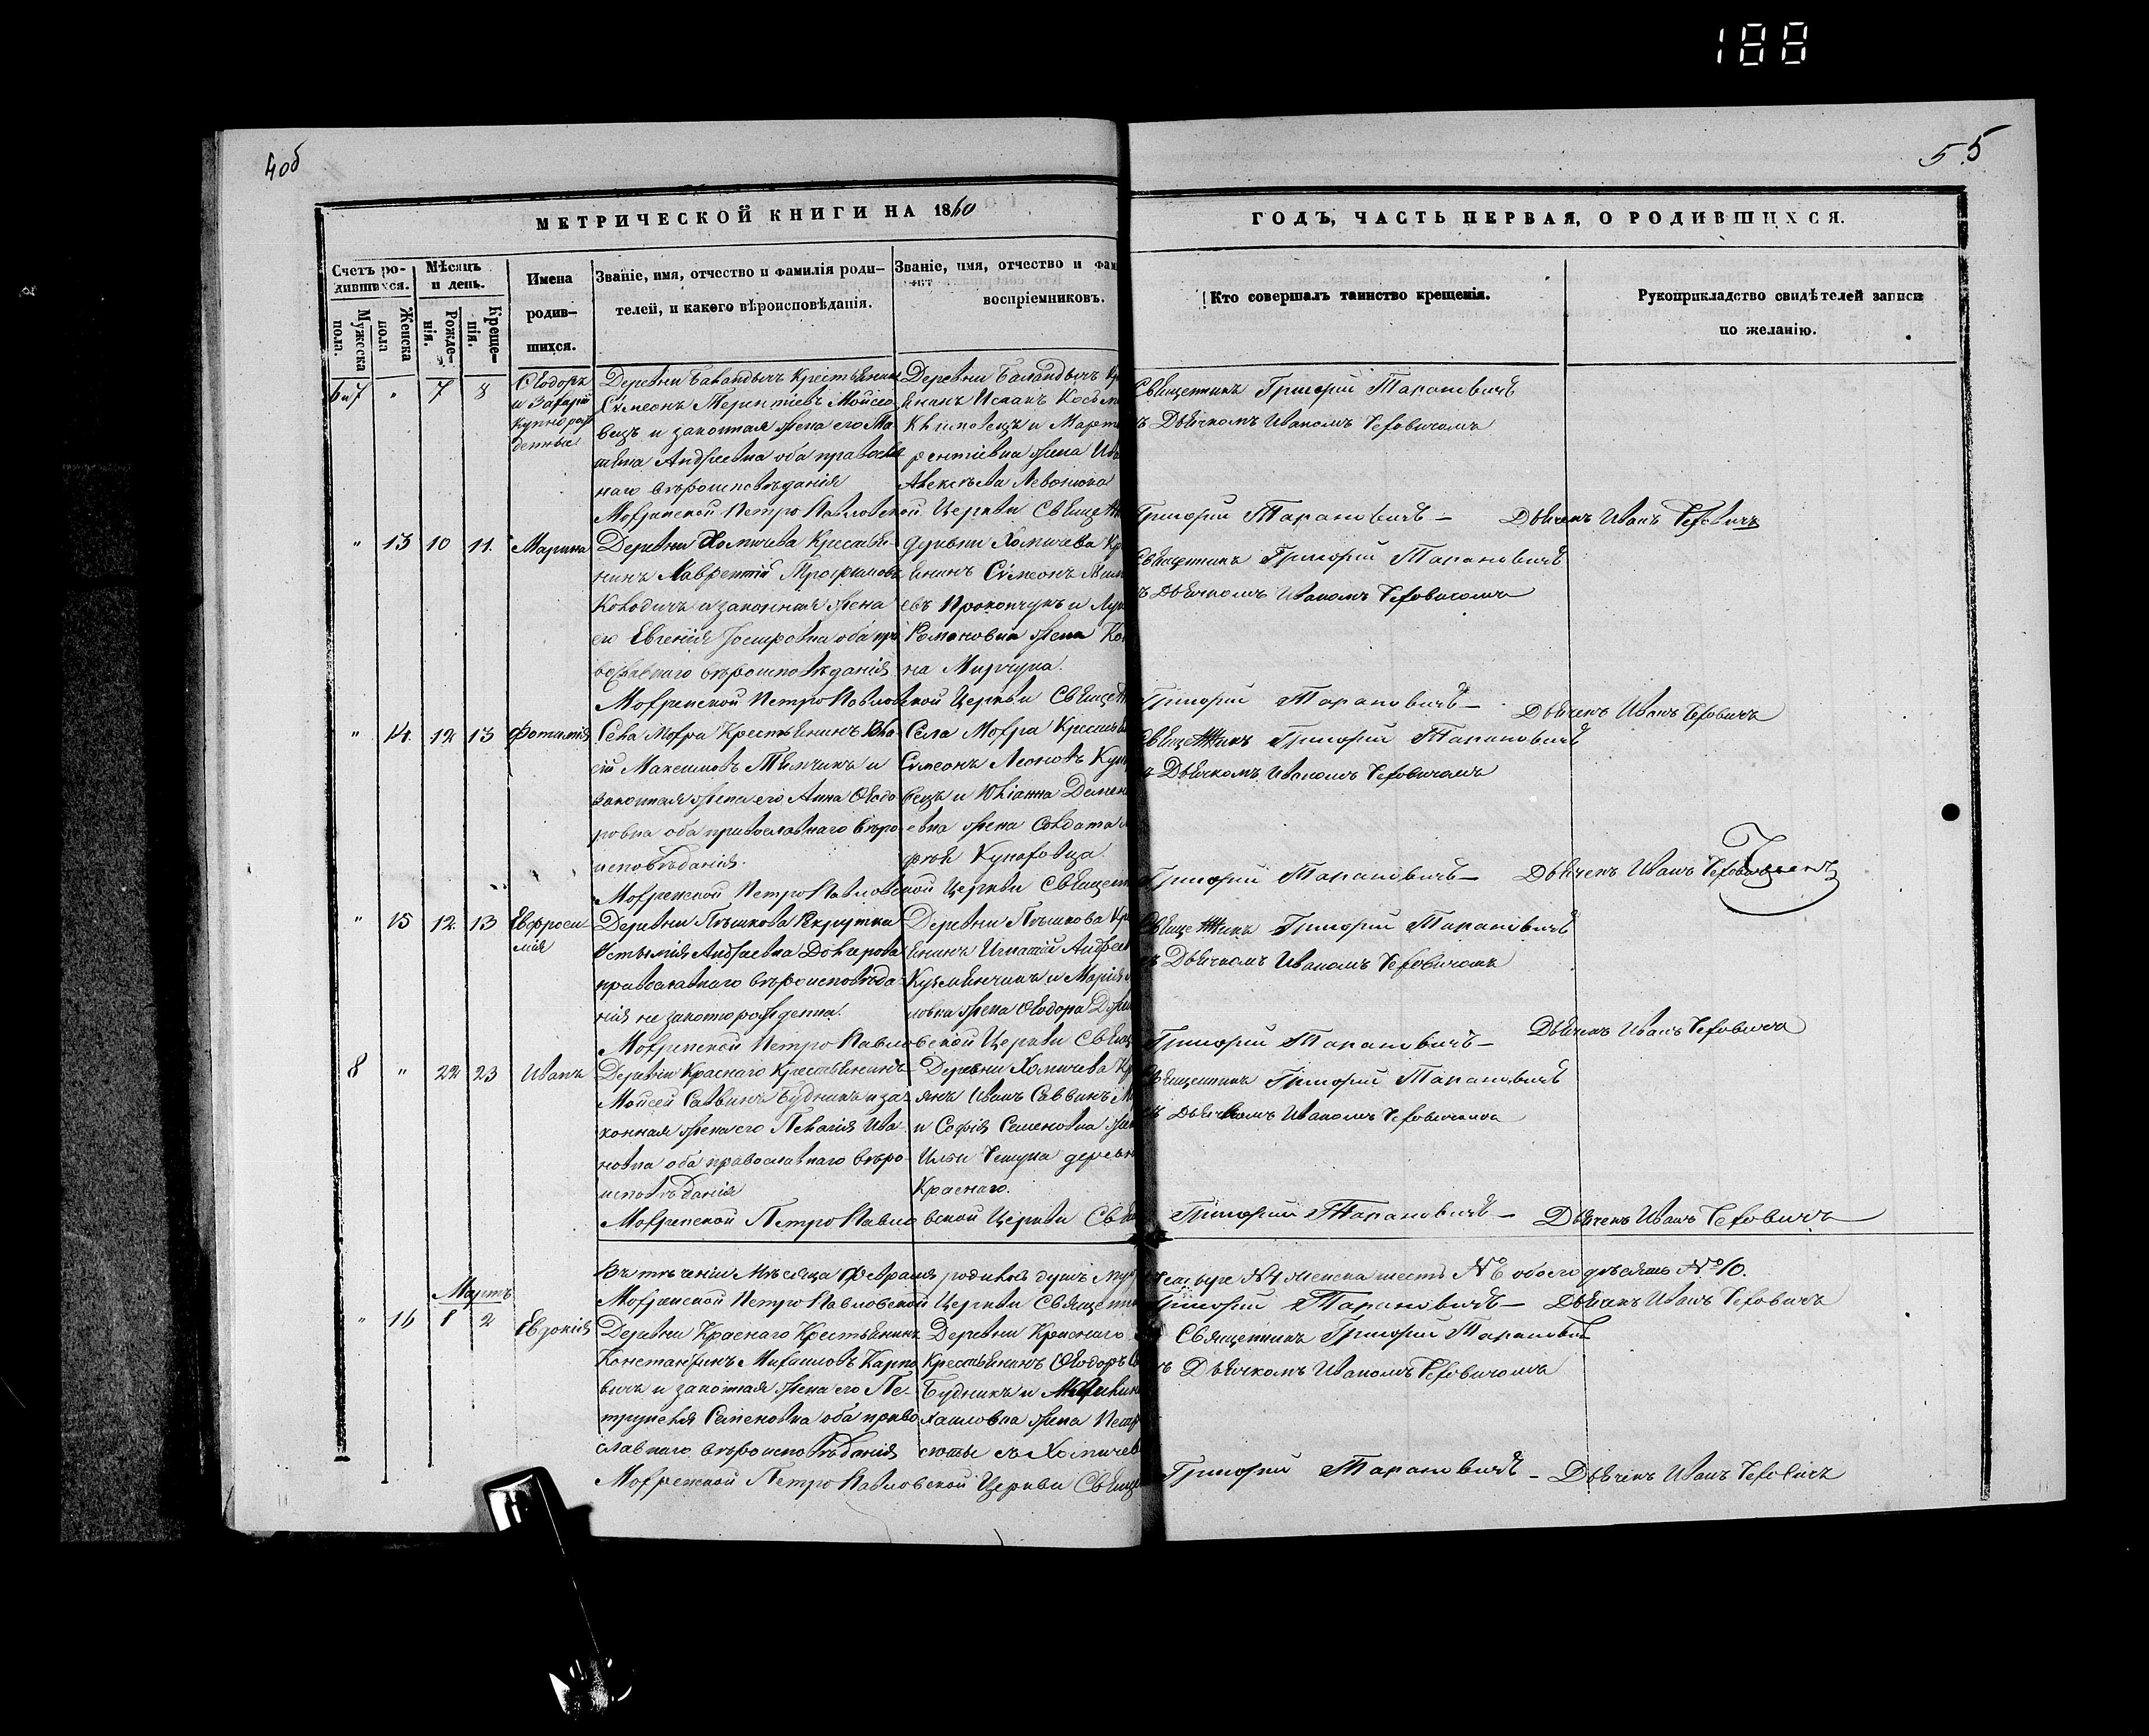 188
4об
5.5
МЕТРИЧЕСКОЙ КНИГИ НА 1860
ГОДЪ, ЧАСТЬ ПЕРВАЯ, О РОДИВШИХСЯ.
Счетъ ро-
дившихся.
Мужеска
пола.
Женска
пола
Мѣсяцъ
и день.
Рожде-
нія.
Креще-
нія.
Имена
родив-
шихся.
Званіе, имя, отчество и фамилія роди-
телей, и какого вѣроисповѣданія.
Званіе, имя, отчество и фам
воспріемниковъ.
Кто совершалъ таинство крещенія.
Рукоприкладство свидѣтелей записи
по желанію.
6 и 7 " 7 8
Ѳеодоръ
и Захарій
купнорож
денные
Деревни Баландичъ Крестьянинъ
Сѵмеонъ Терентіевъ Мойсее
вецъ и законная жена его Та
Андреевна оба православ
наго вѣроисповѣданія
Деревни Баландичъ Кр
янинъ Исаакъ Косьм
и Март
рентіевна жена Ив
Алексѣева Левонюка
Священникъ Григорій Тарановичъ
ъ Дьячкомъ Иваномъ
Петро Павловской Церкви Священ
Григорій Тарановичъ – Дьячекъ Иванъ
" 13 10 11. Марина
Деревни Хомичева Крестья-
нинъ Лаврентій Трофимовъ
Колодичъ и законная жена
его Евгенія оба пра
вославнаго вѣроисповѣданія
Деревни Хомичева Кр
янинъ Сѵмеонъ
евъ Прокопчукъ и Лук
Романовна жена Ко
на Мирчука.
Священникъ Григорій Тарановичъ
ъ Дьячкомъ Иваномъ
Петро Павловской Церкви Священ
Григорій Тарановичъ – Дьячекъ Иванъ
" 14. 12 13 Фотинія
Села Мокра Крестьянинъ Вла
сій Максимовъ Тѣмчикъ и
законная жена его Анна Ѳеодо
ровна оба православнаго вѣро
исповѣданія.
Села Мокра Крестья
Сѵмеонъ Леоновъ
вецъ и Юліанна Демен
евна жена Солдата
Священникъ Григорій Тарановичъ
ъ Дьячкомъ Иваномъ
Петро Павловской Церкви Священ
Григорій Тарановичъ – Дьячекъ Иванъ
" 15 12. 13
Евфроси
нія
Деревни Плѣшкова Рекрутка
Андреевна
православнаго вѣроисповѣда-
нія незаконорожденна.
Деревни Плѣшкова Кр
янинъ Игнатій Андрее
Кузьменчикъ и Марія
ловна жена Ѳеодора
Священникъ Григорій Тарановичъ
ъ Дьячкомъ Иваномъ
Петро Павловской Церкви Свящ
Григорій Тарановичъ – Дьячекъ Иванъ
8 " 22 23 Иванъ
Деревни Краснаго Крестьянинъ
Моисей Саввинъ Будникъ и за-
конная жена его Пелагія Ива-
новна оба православнаго вѣро-
исповѣданія
Деревни Хомичева Кр
янъ Иванъ Саввинъ
и Софія Семеновна жен
Ильи деревн
Краснаго.
Священникъ Григорій Тарановичъ
ъ Дьячкомъ Иваномъ
Петро Павловской Церкви Свящ
Григорій Тарановичъ – Дьячекъ Иванъ
Въ теченіи Мѣсяца Февраля родилось душъ муж
четыре №4 женска шесть №6 обоего десять №10.
Петро Павловской Церкви Священни
Григорій Тарановичъ – Дьячекъ Иванъ
Мартъ
" 16 1 2 Евдокія
Деревни Краснаго Крестьянинъ
Константинъ Михаиловъ Карпо
вичъ и законная жена его Пе-
трунеля Семеновна оба право
славнаго вѣроисповѣданія
Деревни Краснаго
Крестьянинъ Ѳеодоръ
Будникъ и
хаиловна жена Пет
Священникъ Григорій Тарановичъ
ъ Дьячкомъ Иваномъ
Петро Павловской Церкви Священ
Григорій Тарановичъ – Дьячекъ Иванъ